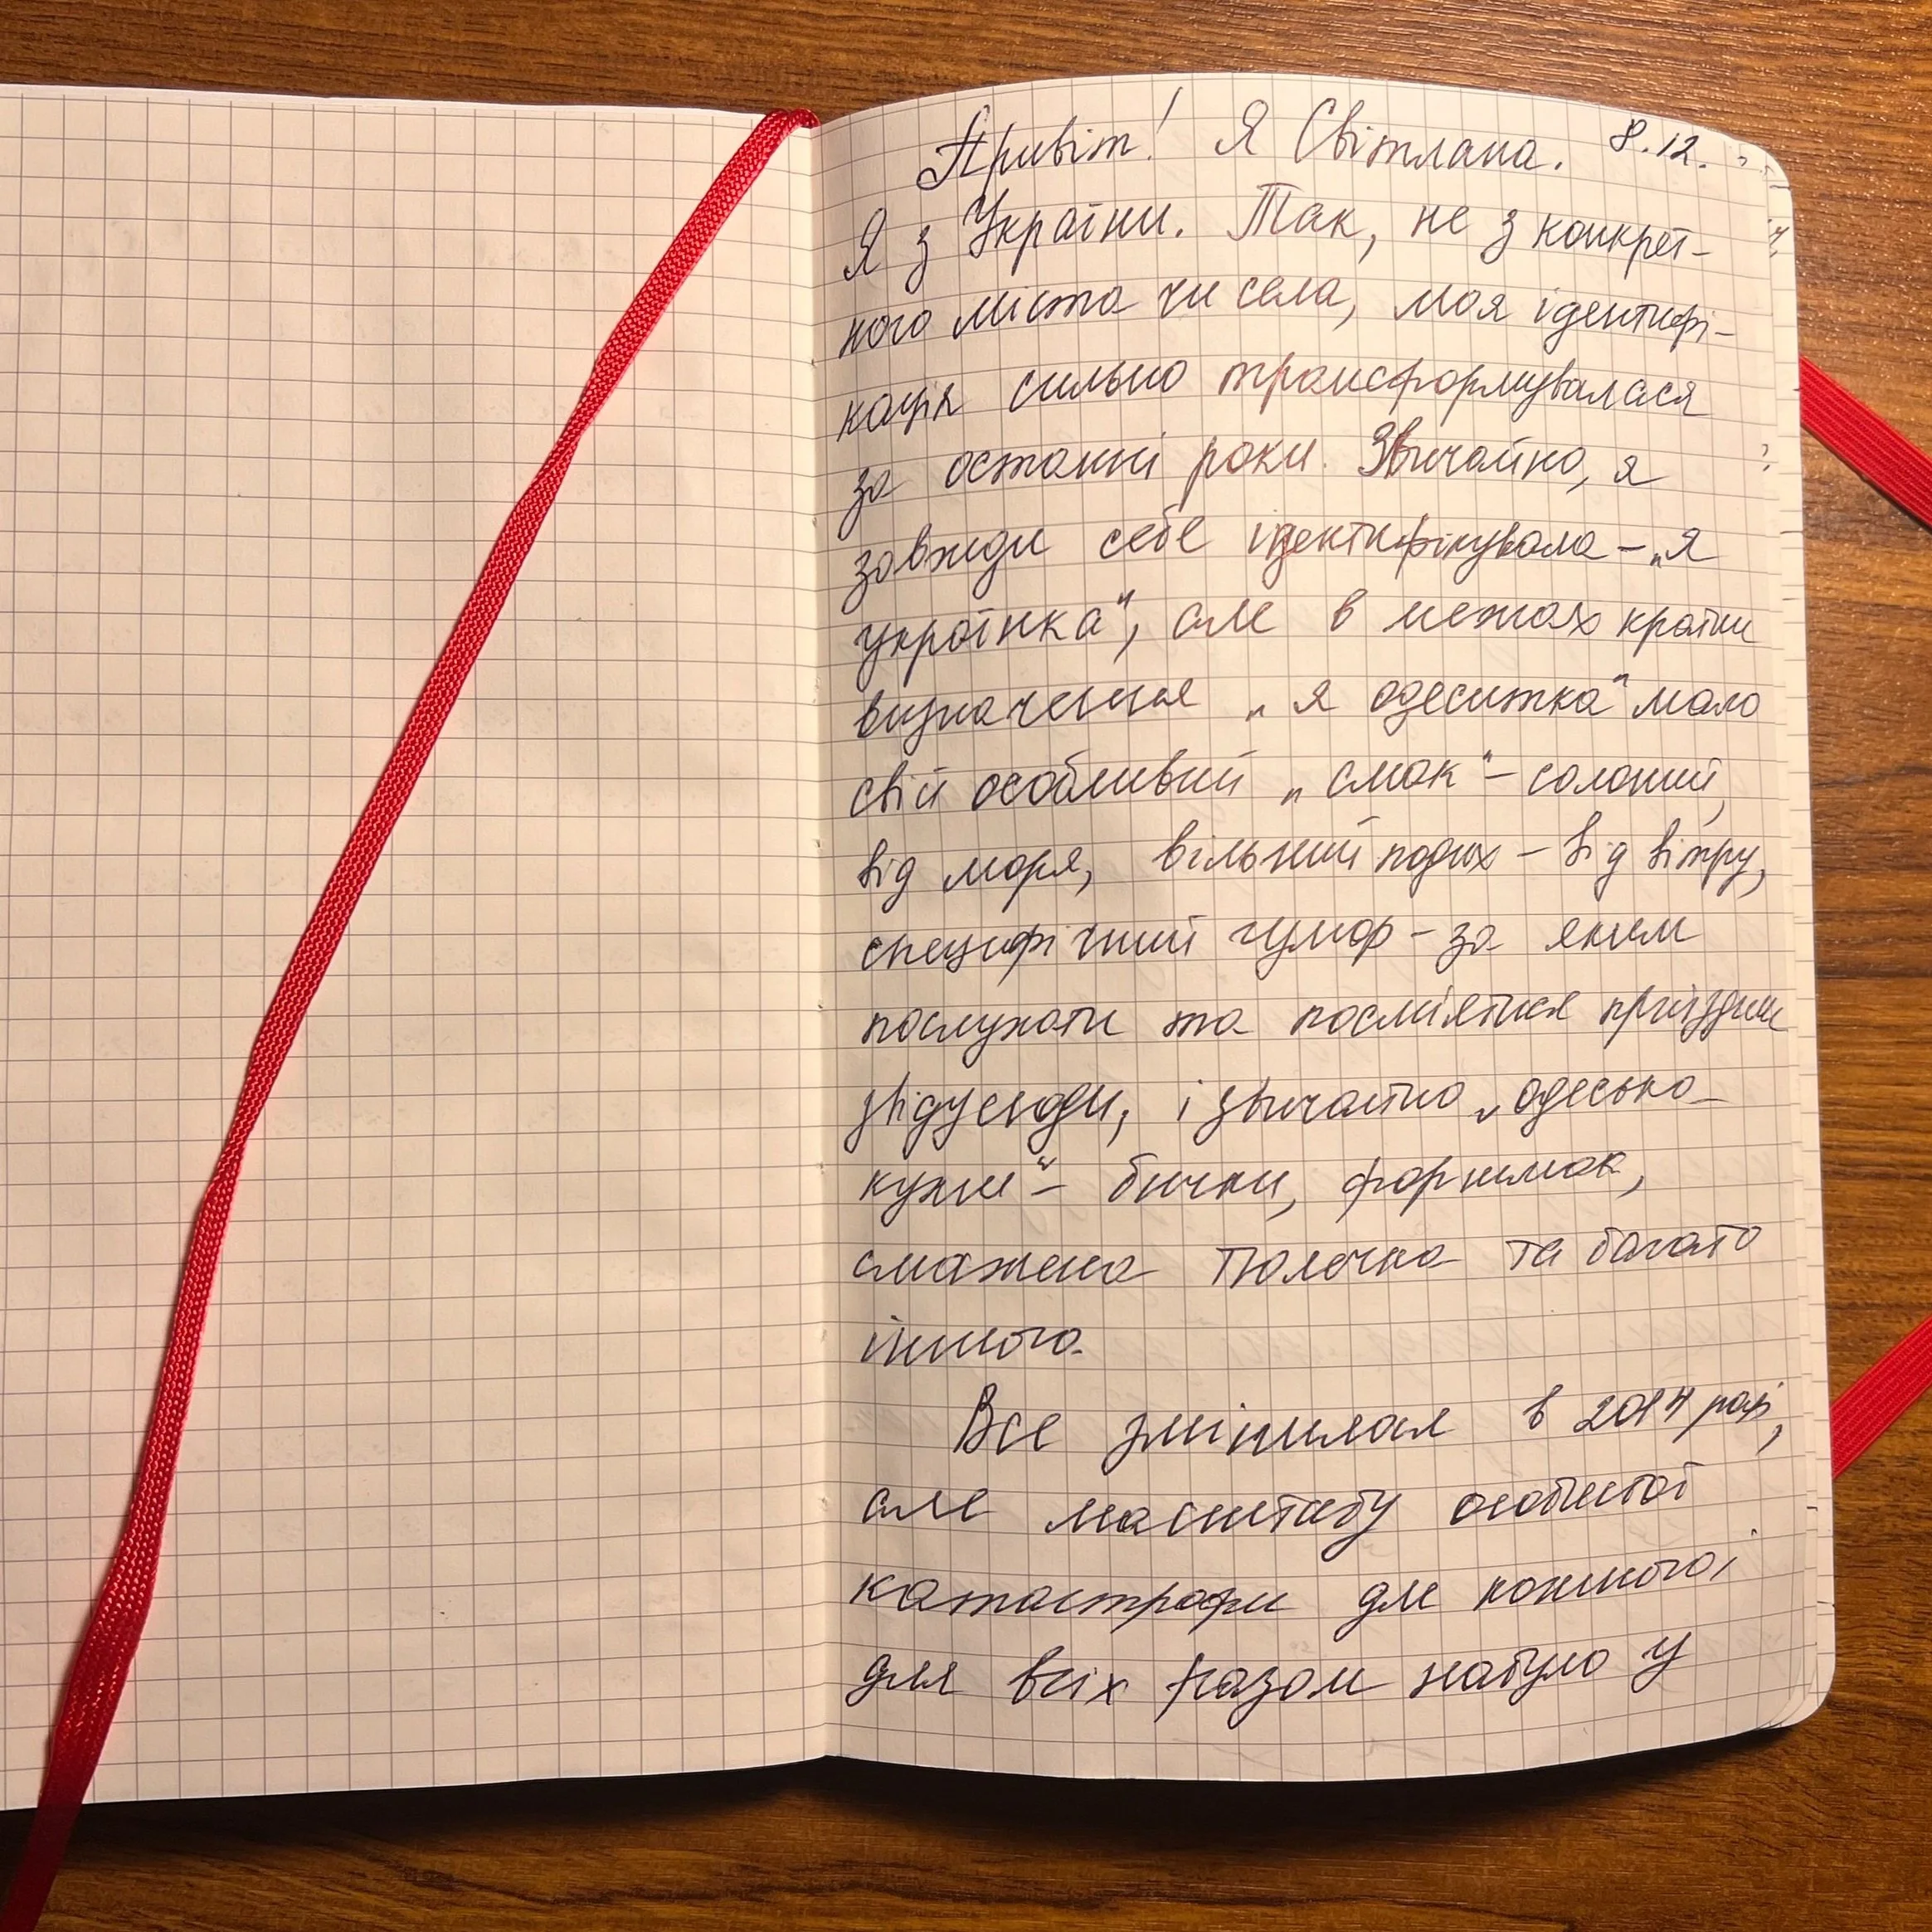 Привіт! Я Світлана. 8.12.
Я з України. Так, не з конкрет-
ного міста чи села, моя ідентифі-
кація сильно трансформувалася
за останні роки. Звичайно, я
завжди себе ідентифікувала – „я
українка“, але в межах країни
визначення „я одеситка“ мало
свій особливий „смак“ – солоний,
від моря, вільний подих – від вітру,
специфічний гумор – за яким
послухати та посміятися приїздили
звідусюди, і звичайно „одесько
кухні“ – бички, форшмак,
смажена тюлечка та багато
іншого.
Все змінилося в 2014 році,
але масштабу особистої
катастрофи для кожного,
для всіх разом набуло у